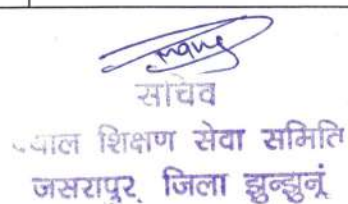 सचिव
शिक्षण सेवा समिति
जसरापुर, जिला झुन्झुनूं